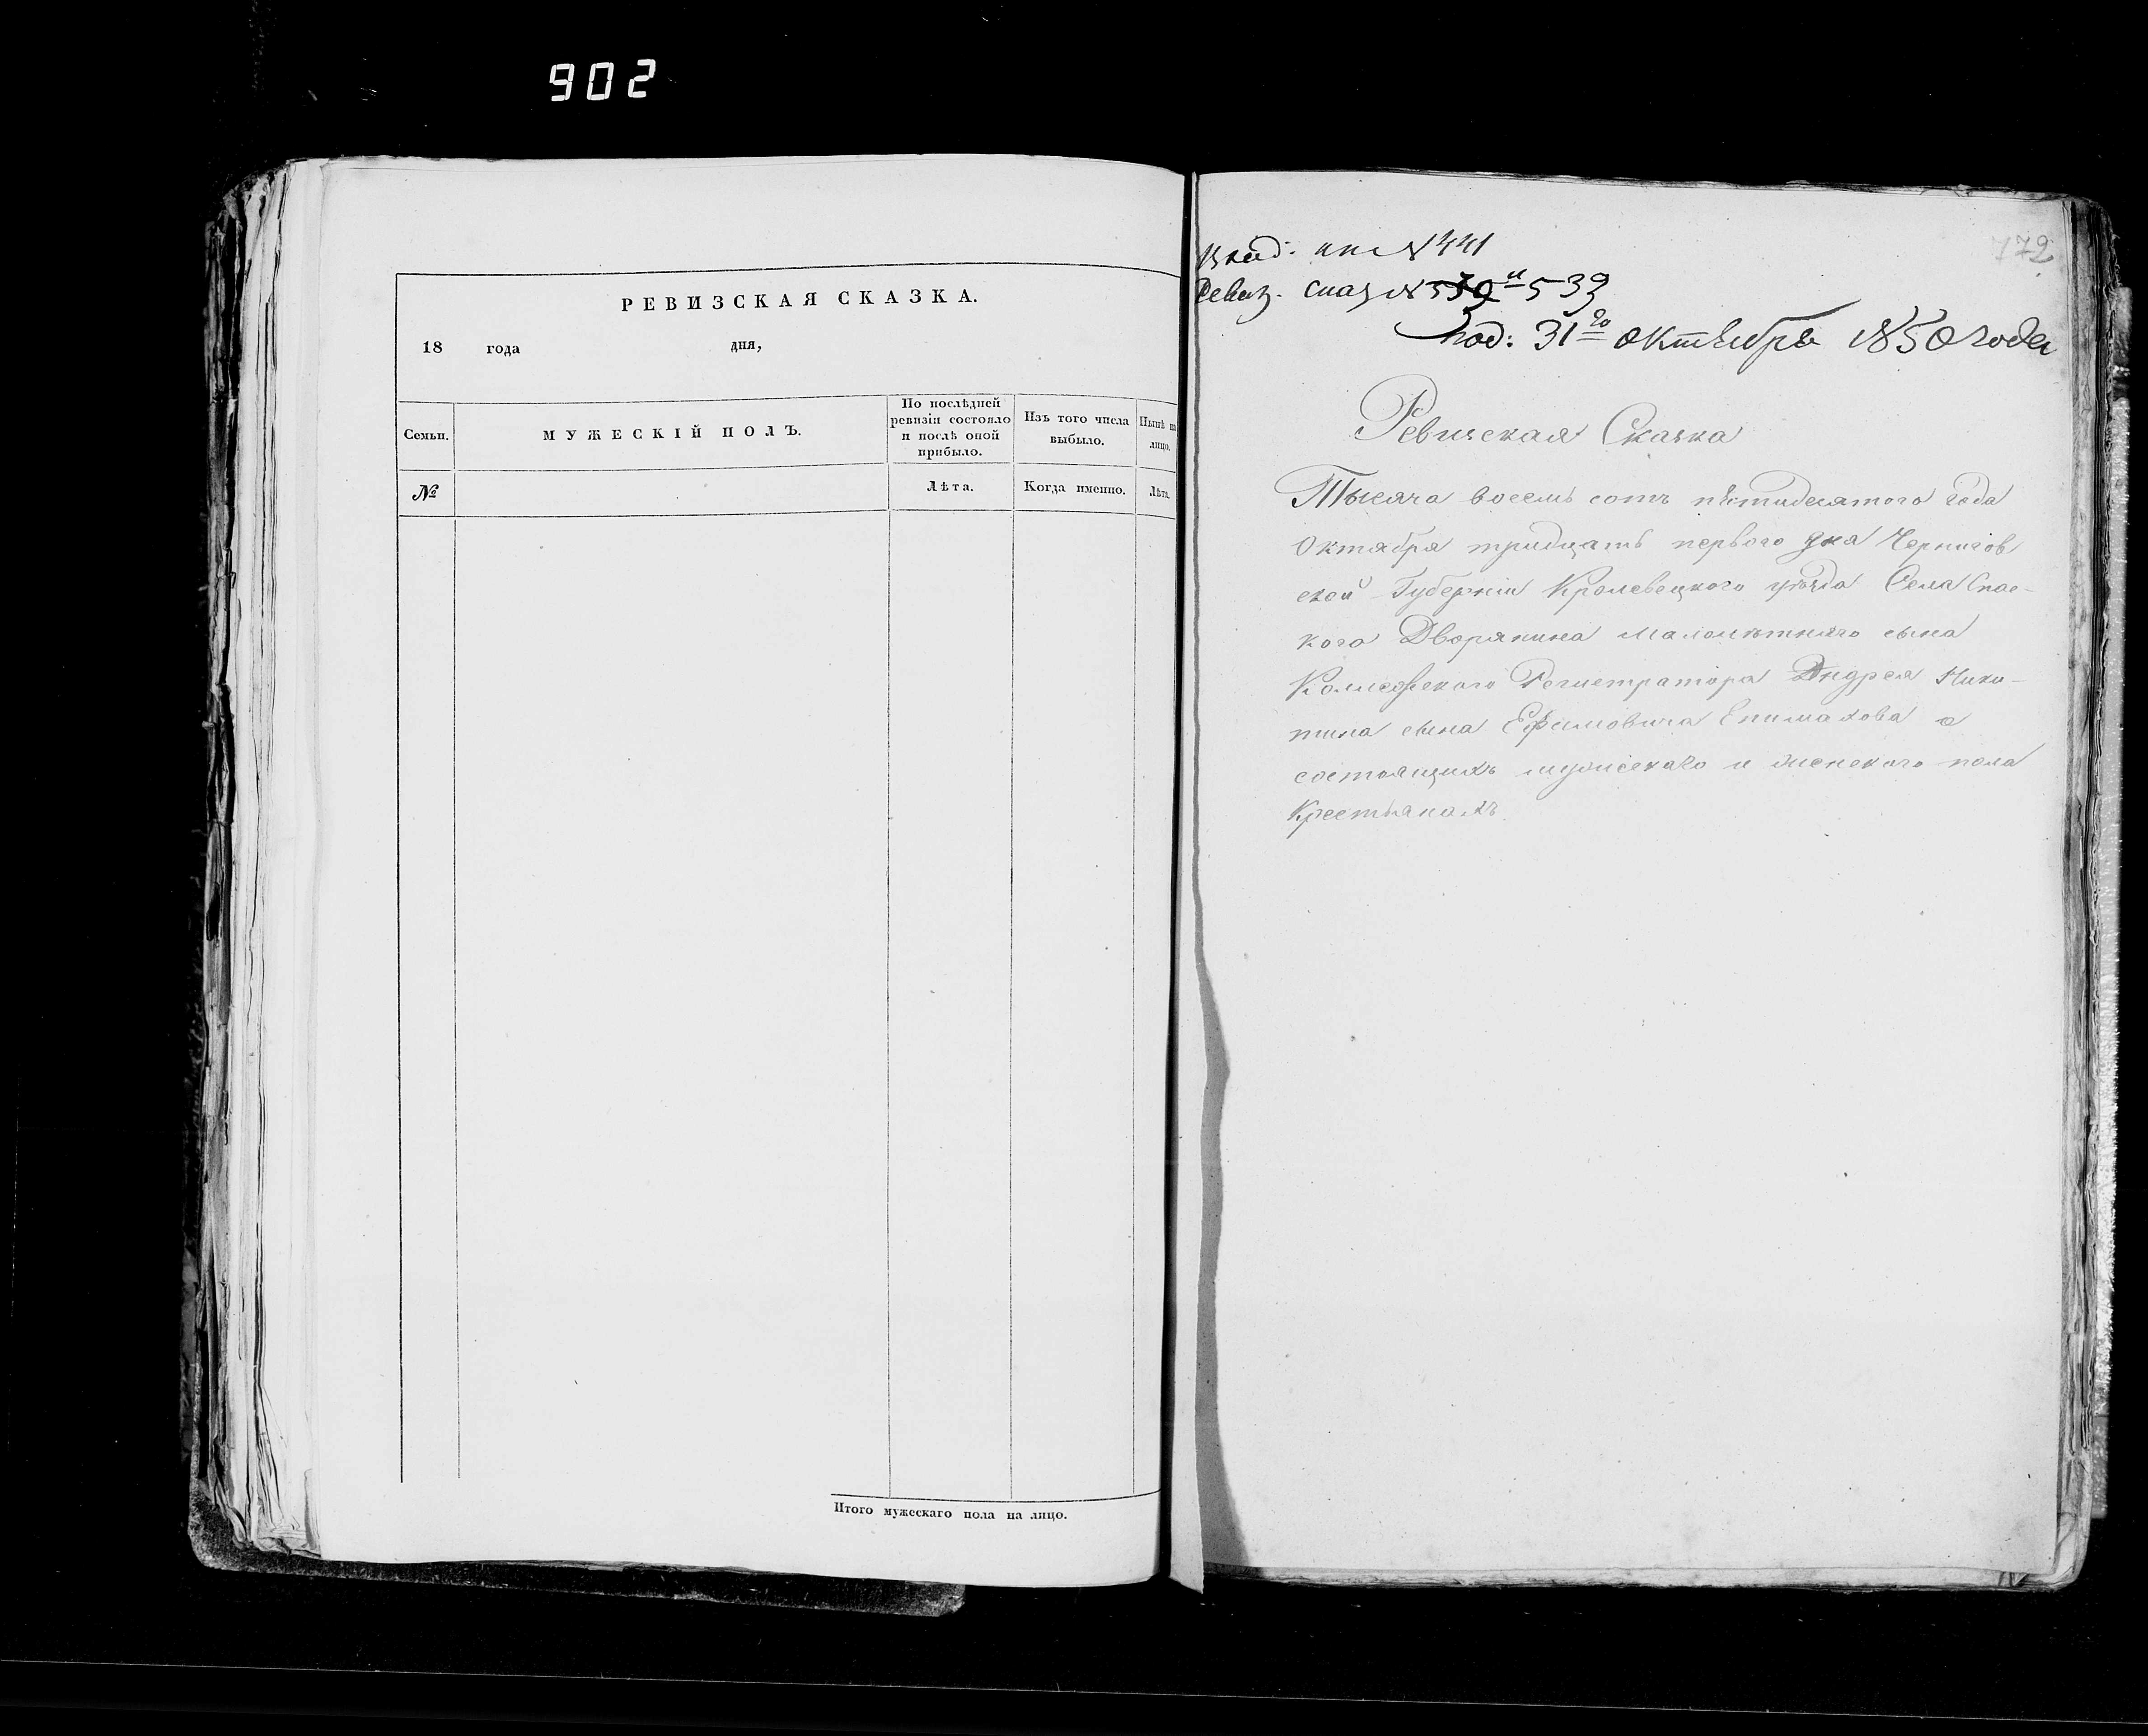 902
РЕВИЗСКАЯ СКАЗКА.
18 года дня,
Семьи.
МУЖЕСКІЙ ПОЛЪ.
По послѣдней
ревизіи состояло
и послѣ оной
прибыло.
Изъ того числа
выбыло.
Нынѣ на
лицо.
№
Лѣта.
Когда именно.
Лѣта.
Итого мужескаго пола на лицо.
772
Вход: кн № 441
Ревиз. сказ № 539
Под: 31го октября 1850 года
Ревизская Сказка
Тысяча восемь сотъ пятидесятого года
Октября тридцать первого дня Чернигов
ской Губерніи Кролевецкого уѣзда Села Спас-
кого Дворянина малолѣтняго сына
Коллежского Регистратора Андрея Ники-
тина сына Ефимовича Епимахова о
состоящихъ мужескаго и женского пола
Крестьянахъ.